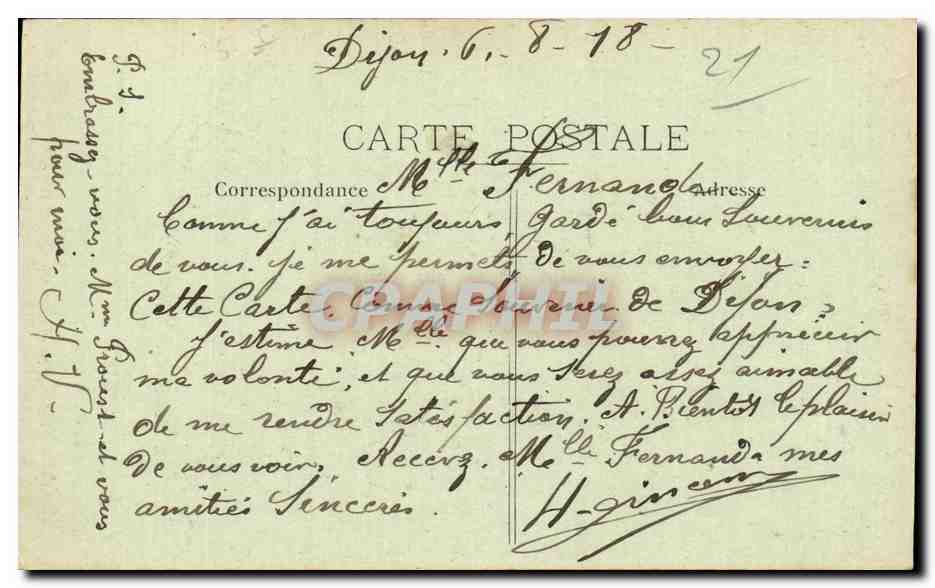 Dijon. 6. 8- 18-
21
CARTE POSTALE
Correspondance
Adresse
Mlle Fernande
Comme j'ai toujours, gardé bons Souvenirs
de vous. je me permets, de vous envoyer =
Cette Carte. Comme Souvenir de Dijon,
J'estime Mlle qui vous pourrez apprécier
ma volonté, et que vous Serez assez aimable
de me rendre Satisfaction. A. Bientôt le plaisir
De vous voir. Recevez. Mlle Fernande mes
amitiés Sincères.
P. S.
Embrassez-vous. Mme et vous
pour moi-
CPAPHIL